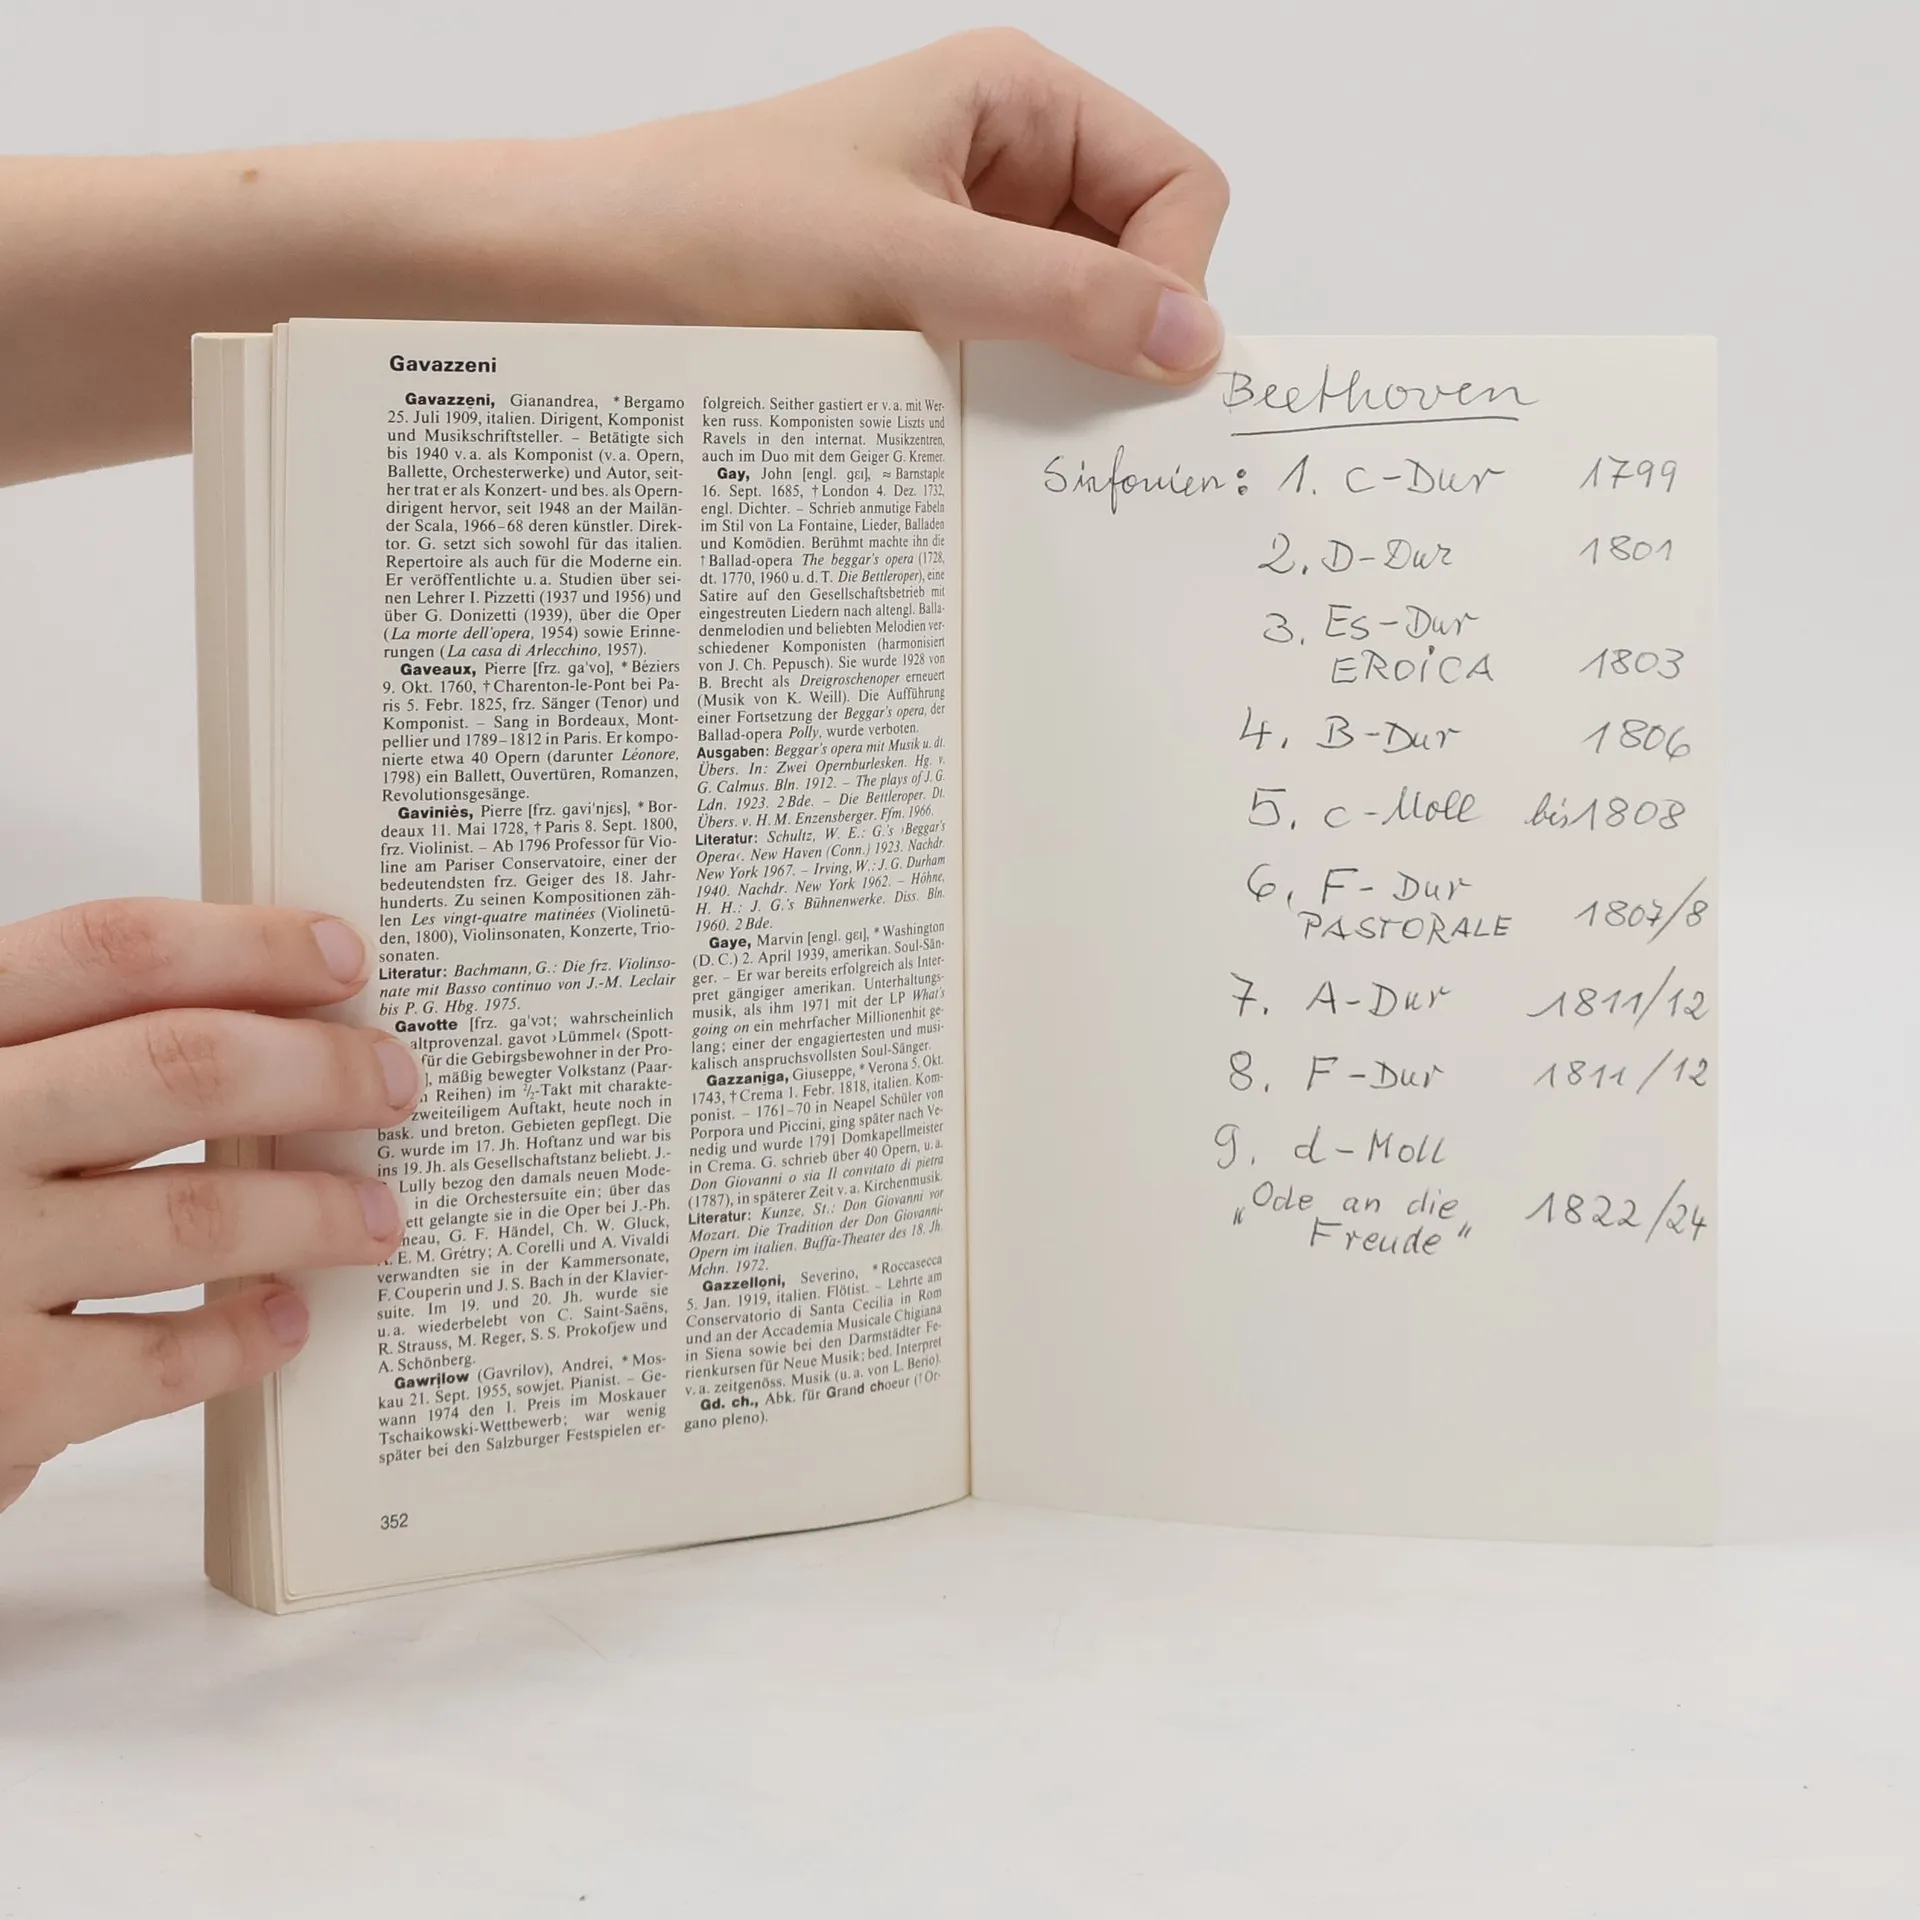 Gavazzeni
Gavazzeni, Gianandrea, * Bergamo
25. Juli 1909, italien. Dirigent, Komponist
und Musikschriftsteller. – Betätigte sich
bis 1940 v. a. als Komponist (v. a. Opern,
Ballette, Orchesterwerke) und Autor, seit-
her trat er als Konzert- und bes. als Opern-
dirigent hervor, seit 1948 an der Mailän-
der Scala, 1966–68 deren künstler. Direk-
tor. G. setzt sich sowohl für das italien.
Repertoire als auch für die Moderne ein.
Er veröffentlichte u. a. Studien über sei-
nen Lehrer I. Pizzetti (1937 und 1956) und
über G. Donizetti (1939), über die Oper
(La morte dell'opera, 1954) sowie Erinne-
rungen (La casa di Arlecchino, 1957).
Gaveaux, Pierre [frz. ga'vo], * Béziers
9. Okt. 1760, † Charenton-le-Pont bei Pa-
ris 5. Febr. 1825, frz. Sänger (Tenor) und
Komponist. – Sang in Bordeaux, Mont-
pellier und 1789–1812 in Paris. Er kompo-
nierte etwa 40 Opern (darunter Léonore,
1798) ein Ballett, Ouvertüren, Romanzen,
Revolutionsgesänge.
Gaviniès, Pierre [frz. gavi'njɛs], * Bor-
deaux 11. Mai 1728, † Paris 8. Sept. 1800,
frz. Violinist. – Ab 1796 Professor für Vio-
line am Pariser Conservatoire, einer der
bedeutendsten frz. Geiger des 18. Jahr-
hunderts. Zu seinen Kompositionen zäh-
len Les vingt-quatre matinées (Violinetü-
den, 1800), Violinsonaten, Konzerte, Trio-
sonaten.
Literatur: Bachmann, G.: Die frz. Violinso-
nate mit Basso continuo von J.-M. Leclair
bis P. G. Hbg. 1975.
Gavotte [frz. ga'vɔt; wahrscheinlich
altprovenzal. gavot ›Lümmel‹ (Spott-
für die Gebirgsbewohner in der Pro-
], mäßig bewegter Volkstanz (Paar-
Reihen) im 2/2-Takt mit charakte-
zweiteiligem Auftakt, heute noch in
bask. und breton. Gebieten gepflegt. Die
G. wurde im 17. Jh. Hoftanz und war bis
ins 19. Jh. als Gesellschaftstanz beliebt. J.-
Lully bezog den damals neuen Mode-
in die Orchestersuite ein; über das
ett gelangte sie in die Oper bei J.-Ph.
neau, G. F. Händel, Ch. W. Gluck,
E. M. Grétry; A. Corelli und A. Vivaldi
verwandten sie in der Kammersonate,
F. Couperin und J. S. Bach in der Klavier-
suite. Im 19. und 20. Jh. wurde sie
u. a. wiederbelebt von C. Saint-Saëns,
R. Strauss, M. Reger, S. S. Prokofjew und
A. Schönberg.
Gawrilow (Gavrilov), Andrei, * Mos-
kau 21. Sept. 1955, sowjet. Pianist. – Ge-
wann 1974 den 1. Preis im Moskauer
Tschaikowski-Wettbewerb; war wenig
später bei den Salzburger Festspielen er-
folgreich. Seither gastiert er v. a. mit Wer-
ken russ. Komponisten sowie Liszts und
Ravels in den internat. Musikzentren,
auch im Duo mit dem Geiger G. Kremer.
Gay, John [engl. gɛɪ], ≈ Barnstaple
16. Sept. 1685, † London 4. Dez. 1732,
engl. Dichter. – Schrieb anmutige Fabeln
im Stil von La Fontaine, Lieder, Balladen
und Komödien. Berühmt machte ihn die
↑ Ballad-opera The beggar's opera (1728,
dt. 1770, 1960 u. d. T. Die Bettleroper), eine
Satire auf den Gesellschaftsbetrieb mit
eingestreuten Liedern nach altengl. Balla-
denmelodien und beliebten Melodien ver-
schiedener Komponisten (harmonisiert
von J. Ch. Pepusch). Sie wurde 1928 von
B. Brecht als Dreigroschenoper erneuert
(Musik von K. Weill). Die Aufführung
einer Fortsetzung der Beggar's opera, der
Ballad-opera Polly, wurde verboten.
Ausgaben: Beggar's opera mit Musik u. dt.
Übers. In: Zwei Opernburlesken. Hg. v.
G. Calmus. Bln. 1912. – The plays of J. G.
Ldn. 1923. 2 Bde. – Die Bettleroper. Dt.
Übers. v. H. M. Enzensberger. Ffm. 1966.
Literatur: Schultz, W. E.: G.'s ›Beggar's
Opera‹. New Haven (Conn.) 1923. Nachdr.
New York 1967. – Irving, W.: J. G. Durham
1940. Nachdr. New York 1962. – Höhne,
H. H.: J. G.'s Bühnenwerke. Diss. Bln.
1960. 2 Bde.
Gaye, Marvin [engl. gɛɪ], * Washington
(D. C.) 2. April 1939, amerikan. Soul-Sän-
ger. – Er war bereits erfolgreich als Inter-
pret gängiger amerikan. Unterhaltungs-
musik, als ihm 1971 mit der LP What's
going on ein mehrfacher Millionenhit ge-
lang; einer der engagiertesten und musi-
kalisch anspruchsvollsten Soul-Sänger.
Gazzaniga, Giuseppe, * Verona 5. Okt.
1743, † Crema 1. Febr. 1818, italien. Kom-
ponist. – 1761–70 in Neapel Schüler von
Porpora und Piccini, ging später nach Ve-
nedig und wurde 1791 Domkapellmeister
in Crema. G. schrieb über 40 Opern, u. a.
Don Giovanni o sia Il convitato di pietra
(1787), in späterer Zeit v. a. Kirchenmusik.
Literatur: Kunze, St.: Don Giovanni vor
Mozart. Die Tradition der Don Giovanni-
Opern im italien. Buffa-Theater des 18. Jh.
Mchn. 1972.
Gazzelloni, Severino, * Roccasecca
5. Jan. 1919, italien. Flötist. – Lehrte am
Conservatorio di Santa Cecilia in Rom
und an der Accademia Musicale Chigiana
in Siena sowie bei den Darmstädter Fe-
rienkursen für Neue Musik; bed. Interpret
v. a. zeitgenöss. Musik (u. a. von L. Berio).
Gd. ch., Abk. für Grand choeur (↑ Or-
gano pleno).
352
Beethoven
Sinfonien: 1. C-Dur 1799
2. D-Dur 1801
3. Es-Dur
EROICA 1803
4. B-Dur 1806
5. c-Moll bis 1808
6. F-Dur
PASTORALE 1807/8
7. A-Dur 1811/12
8. F-Dur 1811/12
9. d-Moll
„Ode an die 1822/24
Freude"